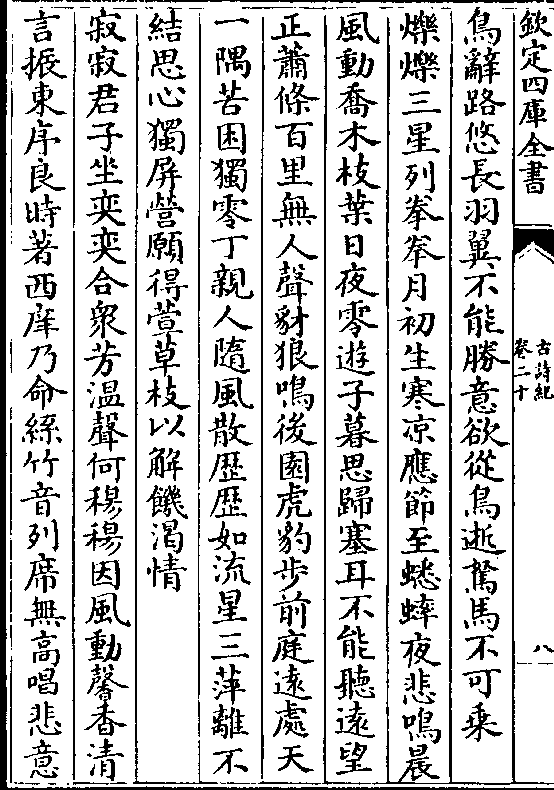 欽定四庫全書
古詩紀
卷二十
八
鳥辭路悠長羽翼不能勝意欲從鳥逝駑馬不可乗
爍爍三星列拳拳月初生寒凉應節至蟋蟀夜悲鳴晨
風動喬木枝葉日夜零遊子暮思歸塞耳不能聽遠望
正蕭條百里無人聲豺狼鳴後園虎豹步前庭遠處天
一隅苦困獨零丁親人隨風散歴歴如流星三萍離不
結思心獨屏營願得萱草枝以解饑渴情
寂寂君子坐奕奕合衆芳温聲何穆穆因風動馨香清
言振東序良時著西庠乃命絲竹音列席無高唱悲意